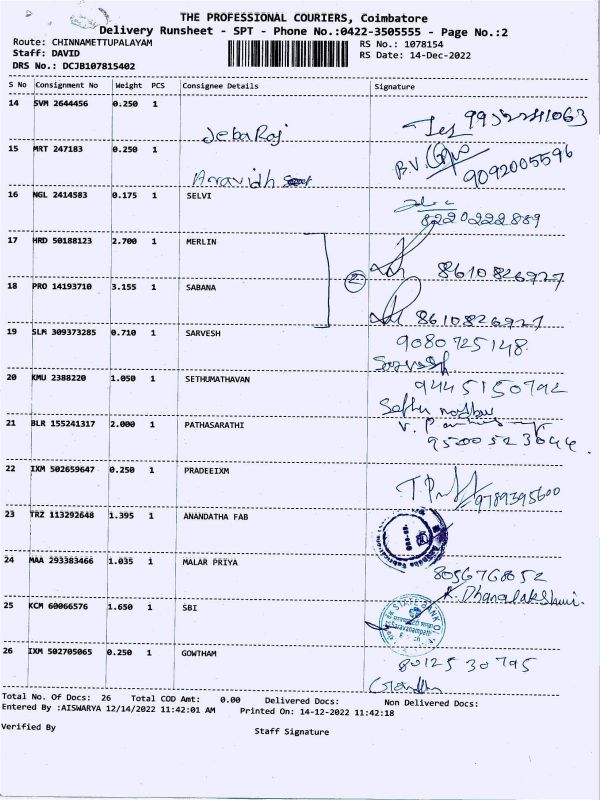 THE PROFESSIONAL COURIERS, Coimbatore
Delivery Runsheet - SPT - Phone No.:0422-3505555 - Page No.:2
Route: CHINNAMETTUPALAYAM RS No.: 1078154
Staff: DAVID RS Date: 14-Dec-2022
DRS No.: DCJB107815402
S No Consignment No Weight PCS Consignee Details Signature
14 SVM 2644456 0.250 1
Jeba Raj
15 MRT 247183 0.250 1
B.V. 9092005596
Aravidh
16 NGL 2414583 0.175 1 SELVI
8220222889
17 HRD 50188123 2.700 1 MERLIN
8610826927
2
18 PRO 14193710 3.155 1 SABANA
8610826927
19 SLM 309373285 0.710 1 SARVESH
9080725148
Sarvesh
20 KMU 2388220 1.050 1 SETHUMATHAVAN
9445150792
21 BLR 155241317 2.000 1 PATHASARATHI
9500523644
22 IXM 502659647 0.250 1 PRADEEIXM
9789395600
23 TRZ 113292648 1.395 1 ANANDATHA FAB
24 MAA 293383466 1.035 1 MALAR PRIYA
8056768052
K. Dhanalakshmi.
25 KCM 60066576 1.650 1 SBI
STATE BANK O
26 IXM 502705065 0.250 1 GOWTHAM
80125 30795
Total No. Of Docs: 26 Total COD Amt: 0.00 Delivered Docs: Non Delivered Docs:
Entered By :AISWARYA 12/14/2022 11:42:01 AM Printed On: 14-12-2022 11:42:18
Verified By Staff Signature